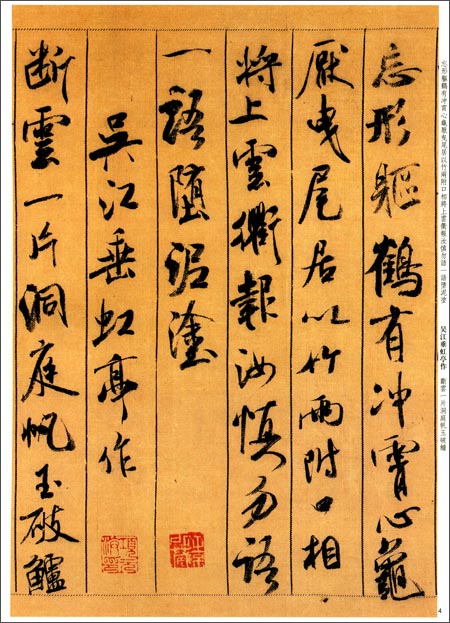 忘形軀鶴有冲霄心龜厭曳尾居以竹兩附口相將上雲衢報汝慎勿語一語墮泥塗 吴江垂虹亭作 斷雲一片洞庭帆玉破鱸
忘形軀鶴有冲霄心龜
厭曳尾居以竹兩附口相
將上雲衢報汝慎勿語
一語墮泥塗
吳江垂虹亭作
断雲一片洞庭帆玉破鱸
4